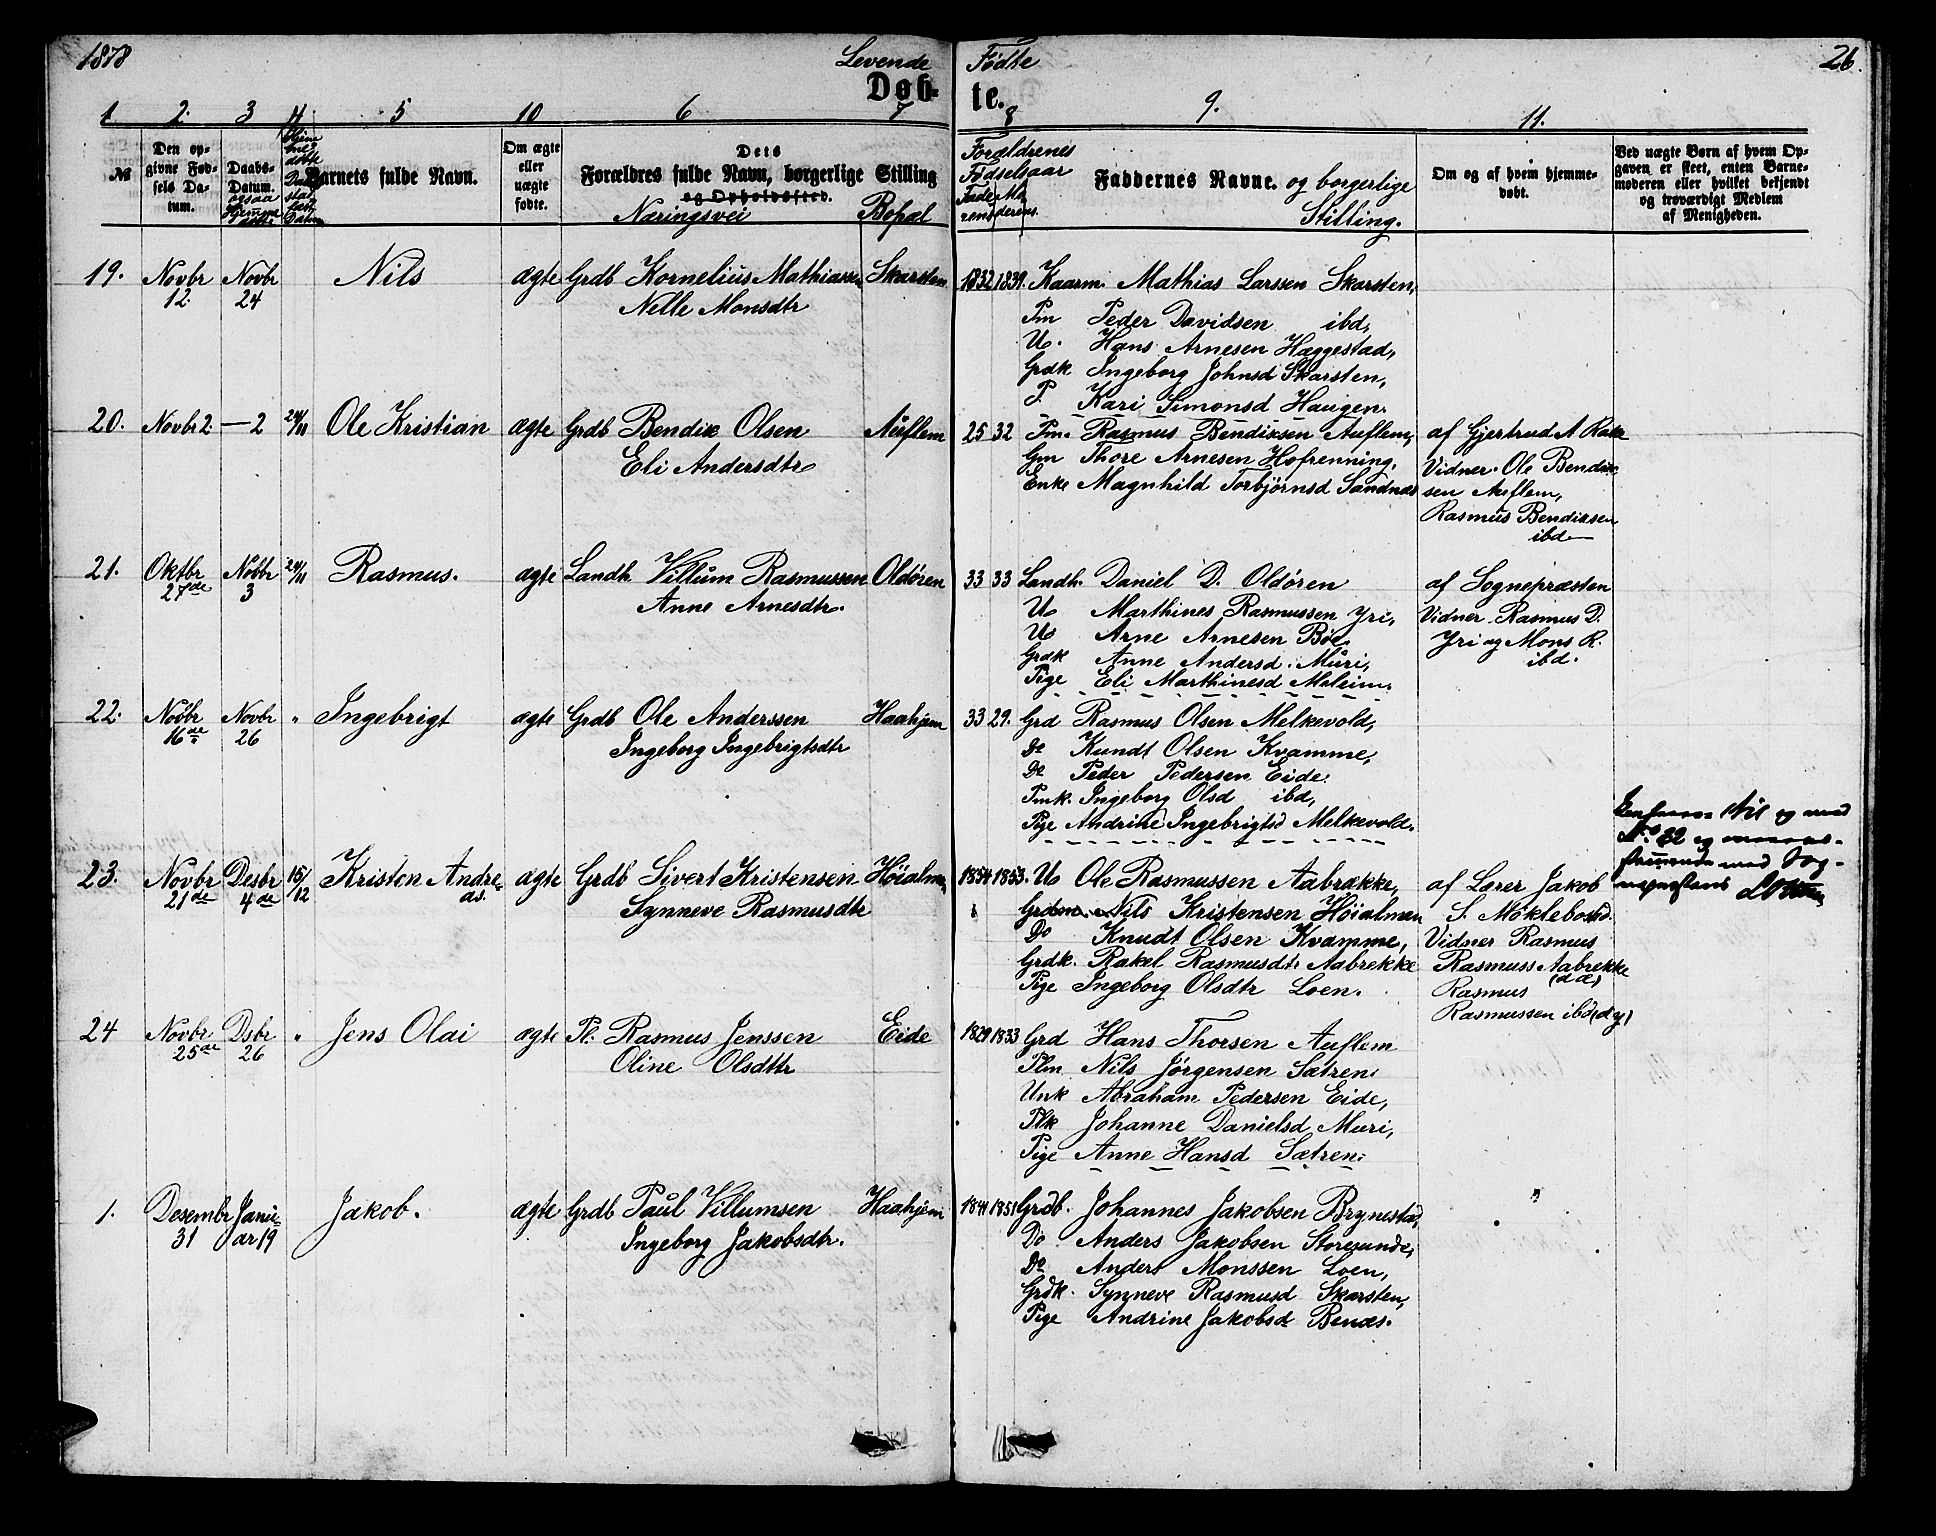 1878 Levende Fødte 26.
Døbte.
1 2. 3 4 5 10 6 7 8 9. 11.
№ Den opgivne Fødsels Datum. Daabs-Datum. Barnets fulde Navn. Om ægte eller uægte fødte. Dets Forældres fulde Navn, borgerlige Stilling og Opholdssted. Næringsvei Bopæl Forældrenes Fødselsaar Faderens Moderens. Faddernes Navne. og borgerlige Stilling. Om og af hvem hjemmedøbt. Ved uægte Børn af hvem Opgaven er skeet, enten Barnemoderen eller hvilket bekjendt og troværdigt Medlem af Menigheden.
19. Novbr 12. Novbr 24 Nils ægte Grdb Kornelius Mathiassen Skarsten 1832 1839. Kaarm. Mathias Larssen Skarsten,
Nelle Monsdtr
Pm Peder Davidsen ibd,
U. Hans Arnesen Hæggestad,
Grdk Ingeborg Johnsd Skarsten,
P. Kari Simonsd Haugen.
20. Novbr 2. — 2 24/11 Ole Kristian ægte Grdb Bendix Olsen Auflem 25 32 Pm. Rasmus Bendiksen Auflem, af Gjertrud A Rake
Eli Andersdtr
Gm Thore Arnesen Hofrenning, Vidner. Ole Bendix
Enke Magnhild Torbjørnsd Sandnes sen Auflem,
Rasmus Bendixsen
ibd
21. Oktbr 27de Novbr 3 24/11 Rasmus. ægte Landh. Villum Rasmussen Oldøren 33 33 Landh. Daniel D. Oldøren af Sognepræsten
Anne Arnesdtr.
U Marthines Rasmussen Yri, Vidner. Rasmus D.
U Arne Arnesen Bøe Yri og Mons R.
Grdk Anne Andersd. Muri, ibd.
Pige Eli Marthinesd Meleim.
22. Novbr 16de Novbr 26 " Ingebrigt ægte Grdb Ole Anderssen Haahjem 33 29. Grd Rasmus Olsen Melkevold,
Ingeborg Ingebrigtsdtr
Do Knudt Olsen Kvamme,
Do Peder Pedersen Eide.
Pmk. Ingeborg Olsd ibd,
Pige Andrine Ingebrigtsd Melkevold.
til og med
No 22 og
med Sog-
nepræstens
23. Novbr 21de Desbr 4de 15/12 Kristen Andreas. ægte Grdb Sivert Kristensen Høialmen 1854 1853. U Ole Rasmussen Aabrække, af Lærer Jakob
Synneve Rasmusdtr
Nils Kristensen Høialmen S. Møklebost.
Do Knudt Olsen Kvamme, Vidner Rasmus
Grdk. Rakel Rasmusdtr Aabrekke Rasmuss Aabrekke
Pige Ingeborg Olsdtr Loen. Rasmus (dæ)
Rasmussen ibd (dy)
24 Novbr 25de Dsbr 26 " Jens Olai ægte Pl. Rasmus Jenssen Eide 1829 1833 Grd Hans Thorsen Auflem
Oline Olsdttr
Plm Nils Jørgensen Sætren,
Unk Abraham Pedersen Eide,
Plk Johanne Danielsd Muri,
Pige Anne Hansd Sætren.
1. Desembr 31 Januar 19 Jakob. ægte Grdb Paul Villumsen Haahjem 1841 1851 Grdb. Johannes Jakobsen Brynestad, "
Ingeborg Jakobsdtr.
Do Anders Jakobsen Storesunde,
Do Anders Monssen Loen,
Grdk. Synneve Rasmusd Skarsten,
Pige Andrine Jakobsd Benæs.